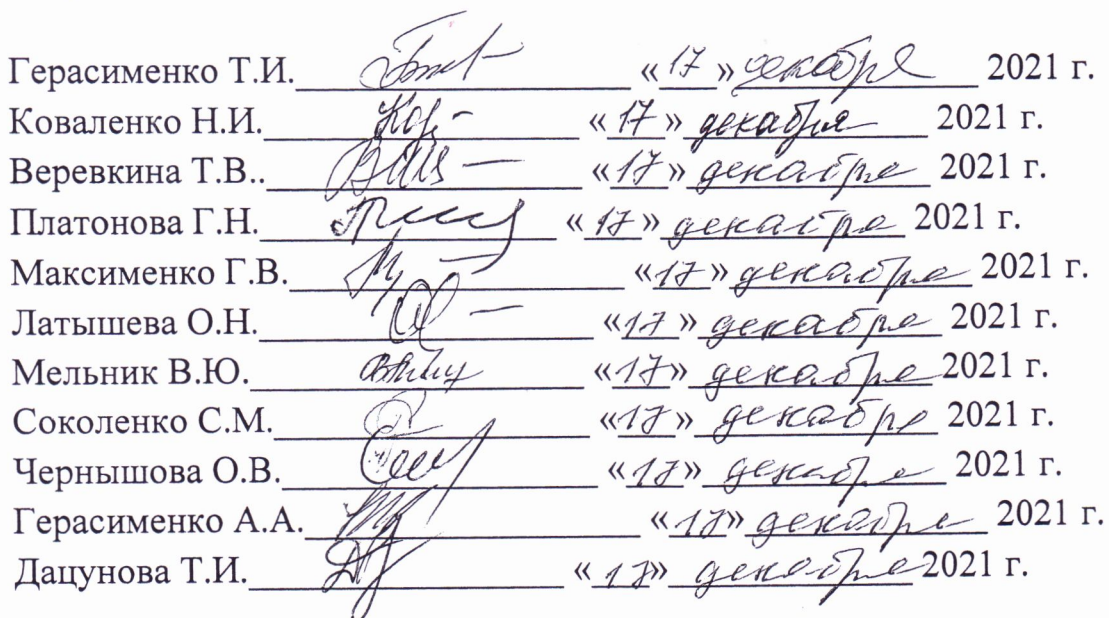 Герасименко Т.И. «17» декабря 2021 г.
Коваленко Н.И. «17» декабря 2021 г.
Веревкина Т.В.. «17» декабря 2021 г.
Платонова Г.Н. «17» декабря 2021 г.
Максименко Г.В. «17» декабря 2021 г.
Латышева О.Н. «17» декабря 2021 г.
Мельник В.Ю. «17» декабря 2021 г.
Соколенко С.М. «17» декабря 2021 г.
Чернышова О.В. «17» декабря 2021 г.
Герасименко А.А. «17» декабря 2021 г.
Дацунова Т.И. «17» декабря 2021 г.